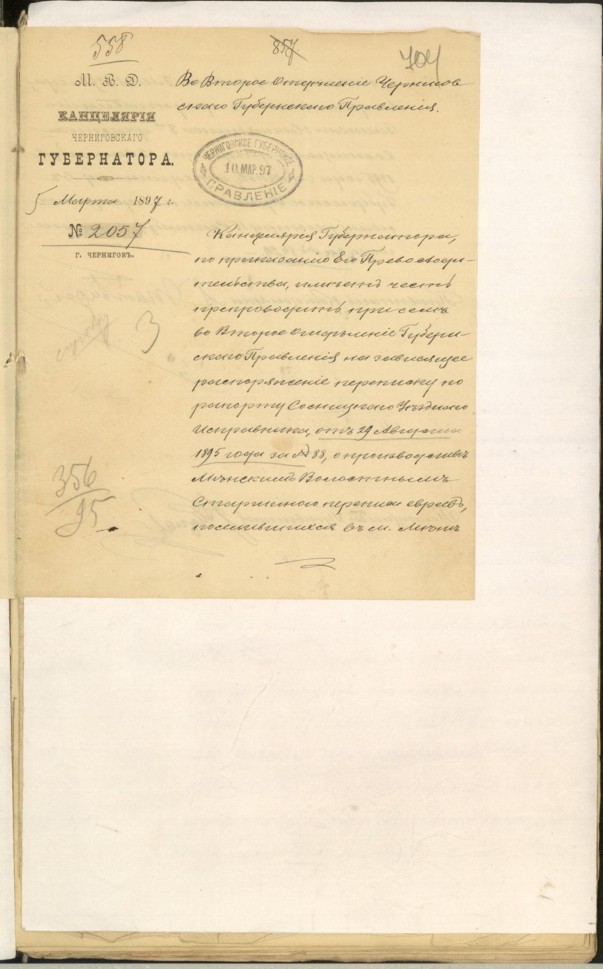 558
857
704
М. В. Д.
КАНЦЕЛЯРІЯ
ЧЕРНИГОВСКАГО
ГУБЕРНАТОРА.
5 Марта 1897 г.
№ 2057
г. ЧЕРНИГОВЪ.
Во Второе Отдѣленіе Чернигов
скаго Губернскаго Правленія.
ЧЕРНИГОВСКОЕ ГУБЕРНСКОЕ
10 МАР. 97
ПРАВЛЕНІЕ
Канцелярія Губернатора,
по приказанію Его Превосходи-
тельства, имѣетъ честь
препроводить при семъ
во Второе Отдѣленіе Губерн-
скаго Правленія на зависящее
распоряженіе переписку по
рапорту Сосницкаго Уѣзднаго
Исправника, отъ 29 Августа
1895 года за № 88, о производствѣ
Мѣнскимъ Волостнымъ
Старшиною переписи евреевъ,
поселившихся въ м. Мѣнѣ
3
356
95